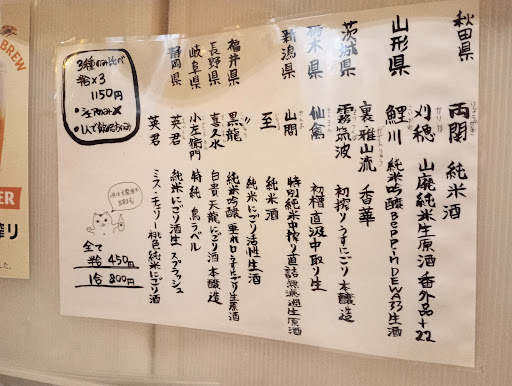 秋田県
両関 純米酒
刈穂 山廃純米生原酒 番外品+22
山形県
鯉川 純米吟醸 BeppinDEWA33生酒
裏・雅山流 香華
茨城県
霧筑波 初搾りうすにごり本醸造
栃木県
仙禽 初槽直汲中取り生
新潟県
山間 特別純米中搾り直詰無濾過生原酒
至 純米酒
〃 純米にごり活性生酒
福井県
黒龍 純米吟醸 垂れ口うすにごり生原酒
長野県
喜久水 白貴天龍にごり酒 本醸造
岐阜県
小左衛門 特純 鳥ラベル
静岡県
英君 純米にごり酒生 スプラッシュ
英君 ミス・チェリー桃色純米にごり酒
3種のみ比べ
半合×3
1150円
全て
半合 450円
1合 800円
BREW